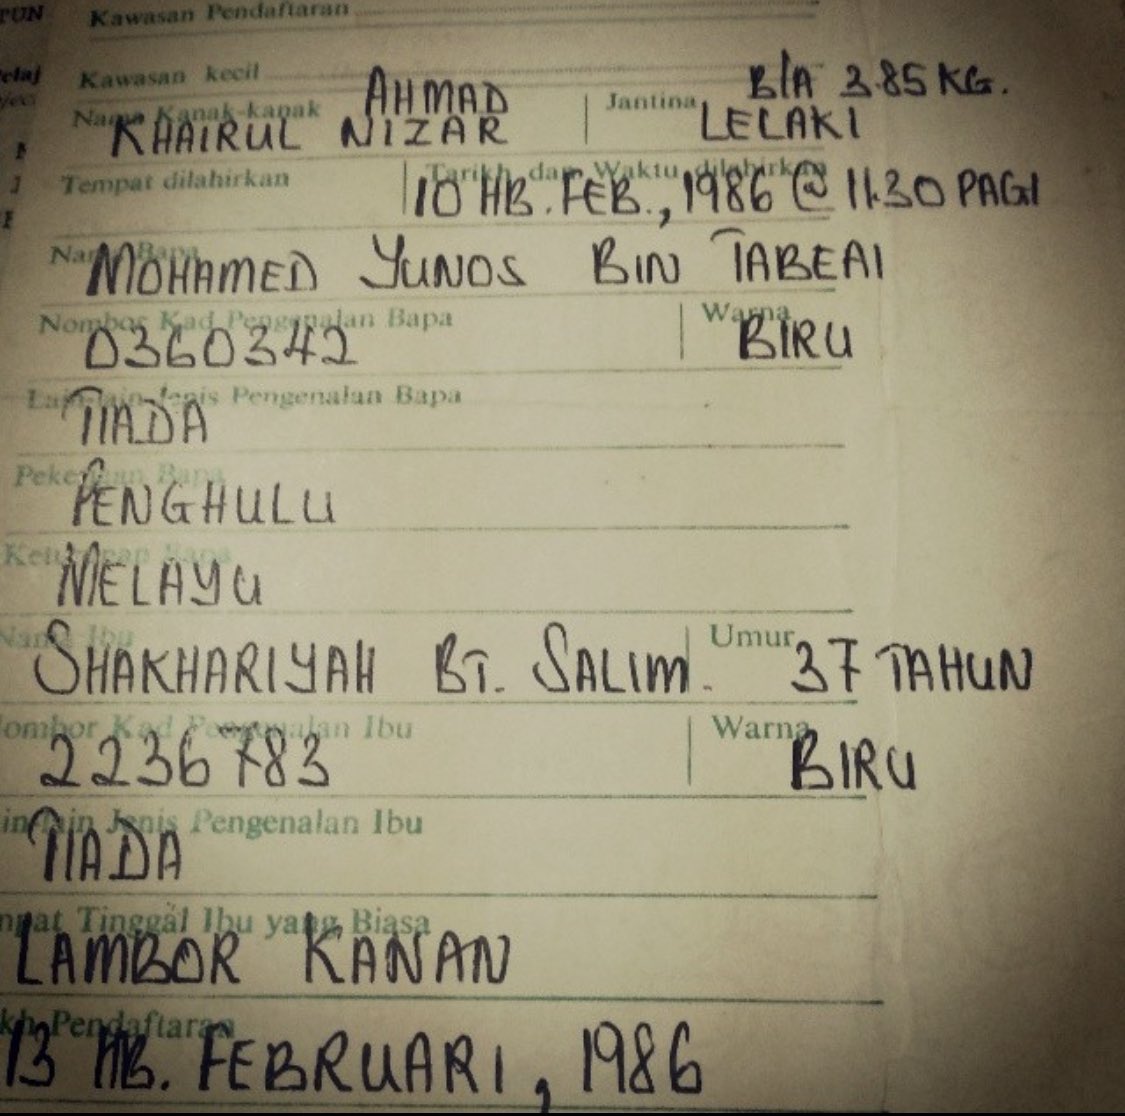 Kawasan Pendaftaran
Kawasan kecil
B/A 3.85 KG.
Nama Kanak-kanak AHMAD
KHAIRUL NIZAR
Jantina
LELAKI
Tempat dilahirkan
Tarikh dan Waktu dilahirkan
10 HB. FEB., 1986 @ 11.30 PAGI
Nama Bapa
MOHAMED YUNOS BIN TABEAI
Nombor Kad Pengenalan Bapa
0360342
Warna
BIRU
Lain-lain Jenis Pengenalan Bapa
TIADA
Pekerjaan Bapa
PENGHULU
Keturunan Bapa
MELAYU
Nama Ibu
SHAKHARIYAH BT. SALIM.
Umur 37 TAHUN
ombor Kad Pengenalan Ibu
2236783
Warna
BIRU
in-lain Jenis Pengenalan Ibu
TIADA
mpat Tinggal Ibu yang Biasa
LAMBOR KANAN
kh Pendaftaran
13 HB. FEBRUARI, 1986